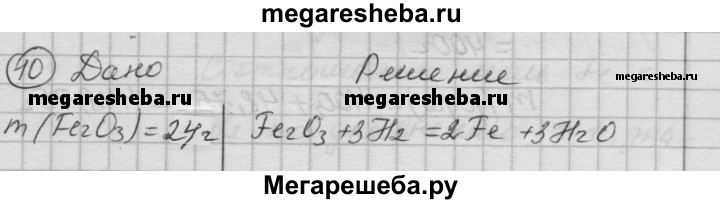 megaresheba.ru
40 Дано Решение
megaresheba.ru megaresheba.ru megaresheba.ru
m(Fe2O3)=24г Fe2O3+3H2=2Fe+3H2O
Мегарешеба.ру